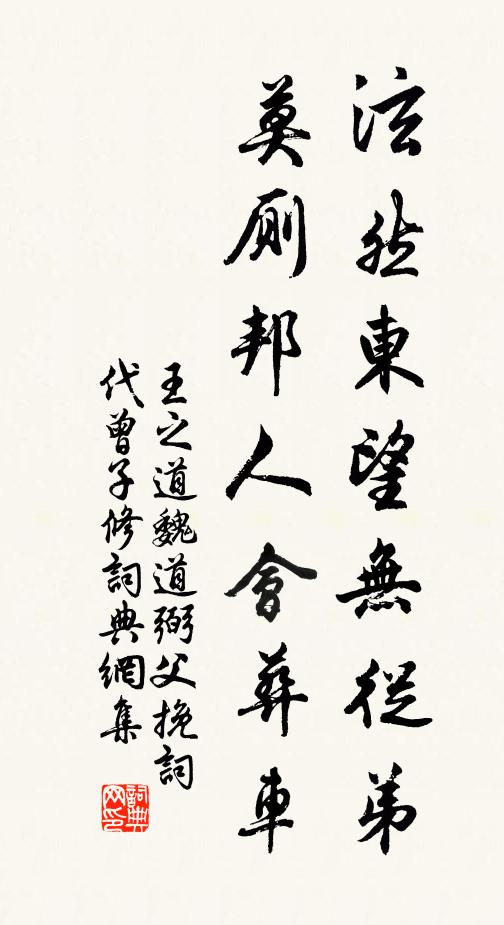 泫然東望無從弟
莫厠邦人會葬車
王之道魏道弼父挽詞
代曾子修詞典網集
詞典
网印